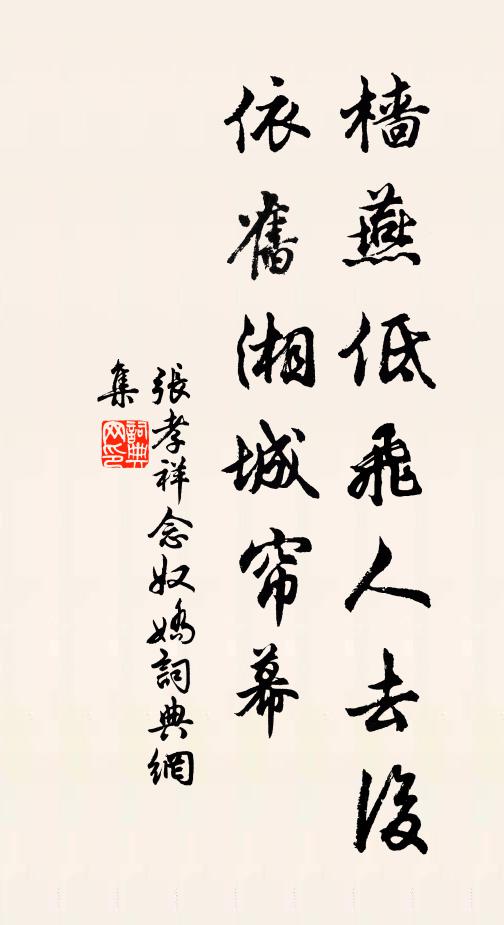 檣燕低飛人去後
依舊湘城帘幕
張孝祥念奴嬌詞典網
集
詞典網印